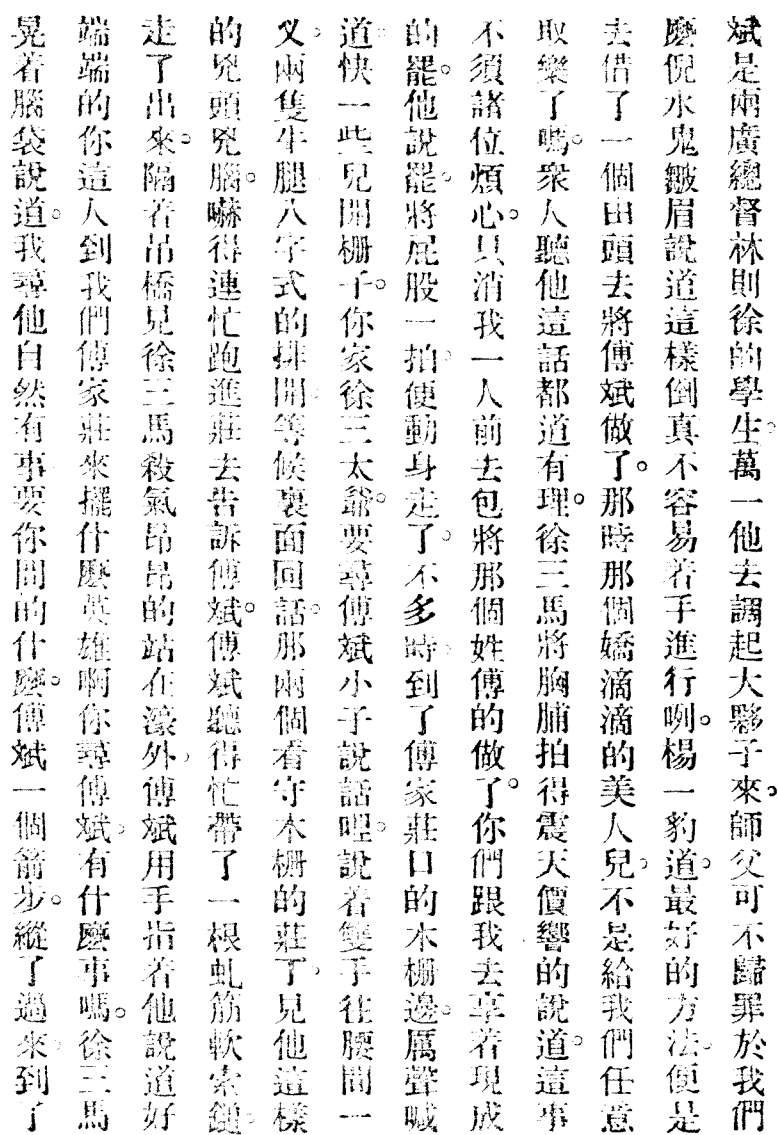 斌是兩廣總督林則徐的學生。萬一他去調起大夥子來。師父可不歸罪於我們
麼倪水鬼皺眉說道這樣倒真不容易着手進行咧。楊一豹道。最好的方法。便是
去借了一個由頭去將傅斌做了。那時那個嬌滴滴的美人兒。不是給我們任意
取樂了嗎。衆人聽他這話都道有理。徐三馬將胸脯拍得震天價響的說道。這事
不須諸位煩心。只消我一人前去包將那個姓傅的做了。你們跟我去享着現成
的罷。他說罷。將屁股一拍。便動身走了。不多時。到了傅家莊口的木柵邊。厲聲喊
道。快一些兒開柵子。你家徐三太爺。要尋傅斌小子說話哩。說着雙手往腰間一
义。兩隻牛腿八字式的排開。等候裏面回話。那兩個看守木柵的莊丁。見他這樣
的兇頭兇腦。嚇得連忙跑進莊去告訴傅斌。傅斌聽得忙帶了一根虬筋軟索鎚。
走了出來。隔着吊橋見徐三馬殺氣昂昂的站在濠外。傅斌用手指着他說道好
端端的你這人到我們傅家莊來擺什麼英雄啊你尋傅斌。有什麼事嗎。徐三馬
晃着腦袋說道。我尋他自然有事要你問的什麼。傅斌一個箭步。縱了過來。到了